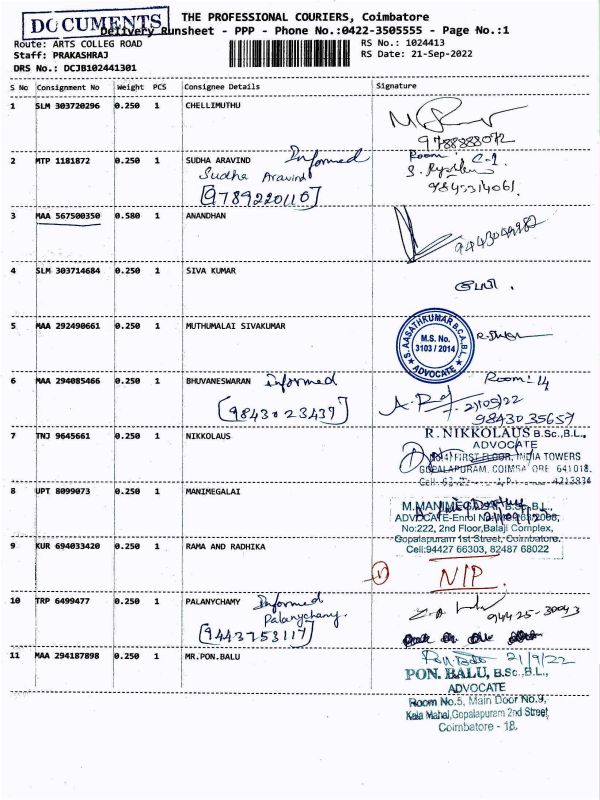 DOCUMENTS
THE PROFESSIONAL COURIERS, Coimbatore
Delivery Runsheet - PPP - Phone No.:0422-3505555 - Page No.:1
Route: ARTS COLLEG ROAD
Staff: PRAKASHRAJ
DRS No.: DCJB102441301
RS No.: 1024413
RS Date: 21-Sep-2022
S No Consignment No Weight PCS Consignee Details Signature
1 SLM 303720296 0.250 1 CHELLIMUTHU
9788888072
2 MTP 1181872 0.250 1 SUDHA ARAVIND Informed
Sudha Aravind
[9789220110]
Room: C-1
9843314061.
3 MAA 567500350 0.580 1 ANANDHAN
9443049982
4 SLM 303714684 0.250 1 SIVA KUMAR
5 MAA 292490661 0.250 1 MUTHUMALAI SIVAKUMAR
S. AASATHKUMAR B.C.A,B.L.
M.S. No.
3103 / 2014
ADVOCATE
6 MAA 294085466 0.250 1 BHUVANESWARAN informed
[9843023437]
Room: 14
9843035657
7 TNJ 9645661 0.250 1 NIKKOLAUS
R. NIKKOLAUS B.Sc.,B.L.,
ADVOCATE
FIRST FLOOR, INDIA TOWERS
GOPALAPURAM, COIMBATORE 641018.
4213834
8 UPT 8099073 0.250 1 MANIMEGALAI
M.MANIMEGALAI, B.Sc.,B.L.,
ADVOCATE-Enrol No:
No:222, 2nd Floor,Balaji Complex,
Gopalapuram 1st Street, Coimbatore.
Cell:94427 66303, 82487 68022
9 KUR 694033420 0.250 1 RAMA AND RADHIKA
NIP.
10 TRP 6499477 0.250 1 PALANYCHAMY Informed
Palanychamy.
[9443753117]
94425-30043
11 MAA 294187898 0.250 1 MR.PON.BALU
21/9/22
PON. BALU, B.Sc.,B.L.,
ADVOCATE
Room No.5, Main Door No.9,
Kala Mahal,Gopalapuram 2nd Street,
Coimbatore - 18.